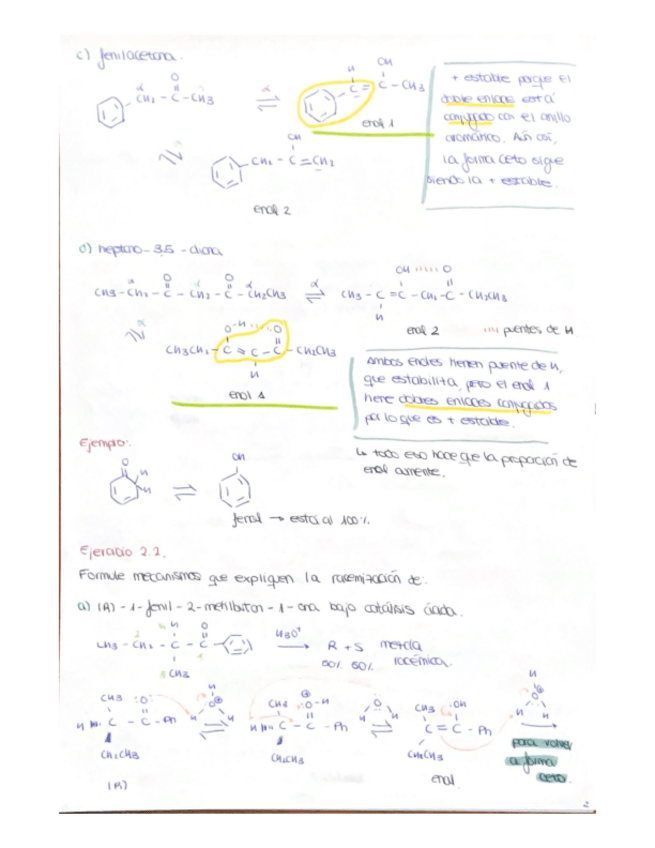 c) fenilacetona.
CH₂ - C - CH₃
O
α
H
OH
C = C - CH₃
enol 1
+ estable porque el
doble enlace está
conjugado con el anillo
aromático. Aún así,
la forma ceto sigue
siendo la + estable.
OH
CH₂ - C = CH₂
enol 2
d) heptano-3,5-diona
CH₃ - CH₂ - C - CH₂ - C - CH₂CH₃
CH₃ - C = C - CH₂ - C - CH₂CH₃
enol 2
puentes de H
CH₃CH₂ - C = C - C - CH₂CH₃
enol 1
Ambos enoles tienen puente de H,
que estabiliza, pero el enol 1
tiene dobles enlaces conjugados
por lo que es + estable.
↳ todo eso hace que la proporción de
enol aumente.
Ejemplo:
OH
fenol → está al 100%.
Ejercicio 2.2.
Formule mecanismos que expliquen la racemización de:
a) (R)-1-fenil-2-metilbutan-1-ona bajo catálisis ácida.
CH₃ - CH₂ - C - C
CH₃
H₃O⁺
R + S mezcla
50% 50% racémica.
CH₃
C - C - Ph
CH₂CH₃
(R)
CH₃
C - C - Ph
CH₂CH₃
CH₃
C = C - Ph
CH₂CH₃
enol
para volver
a forma
ceto.
2